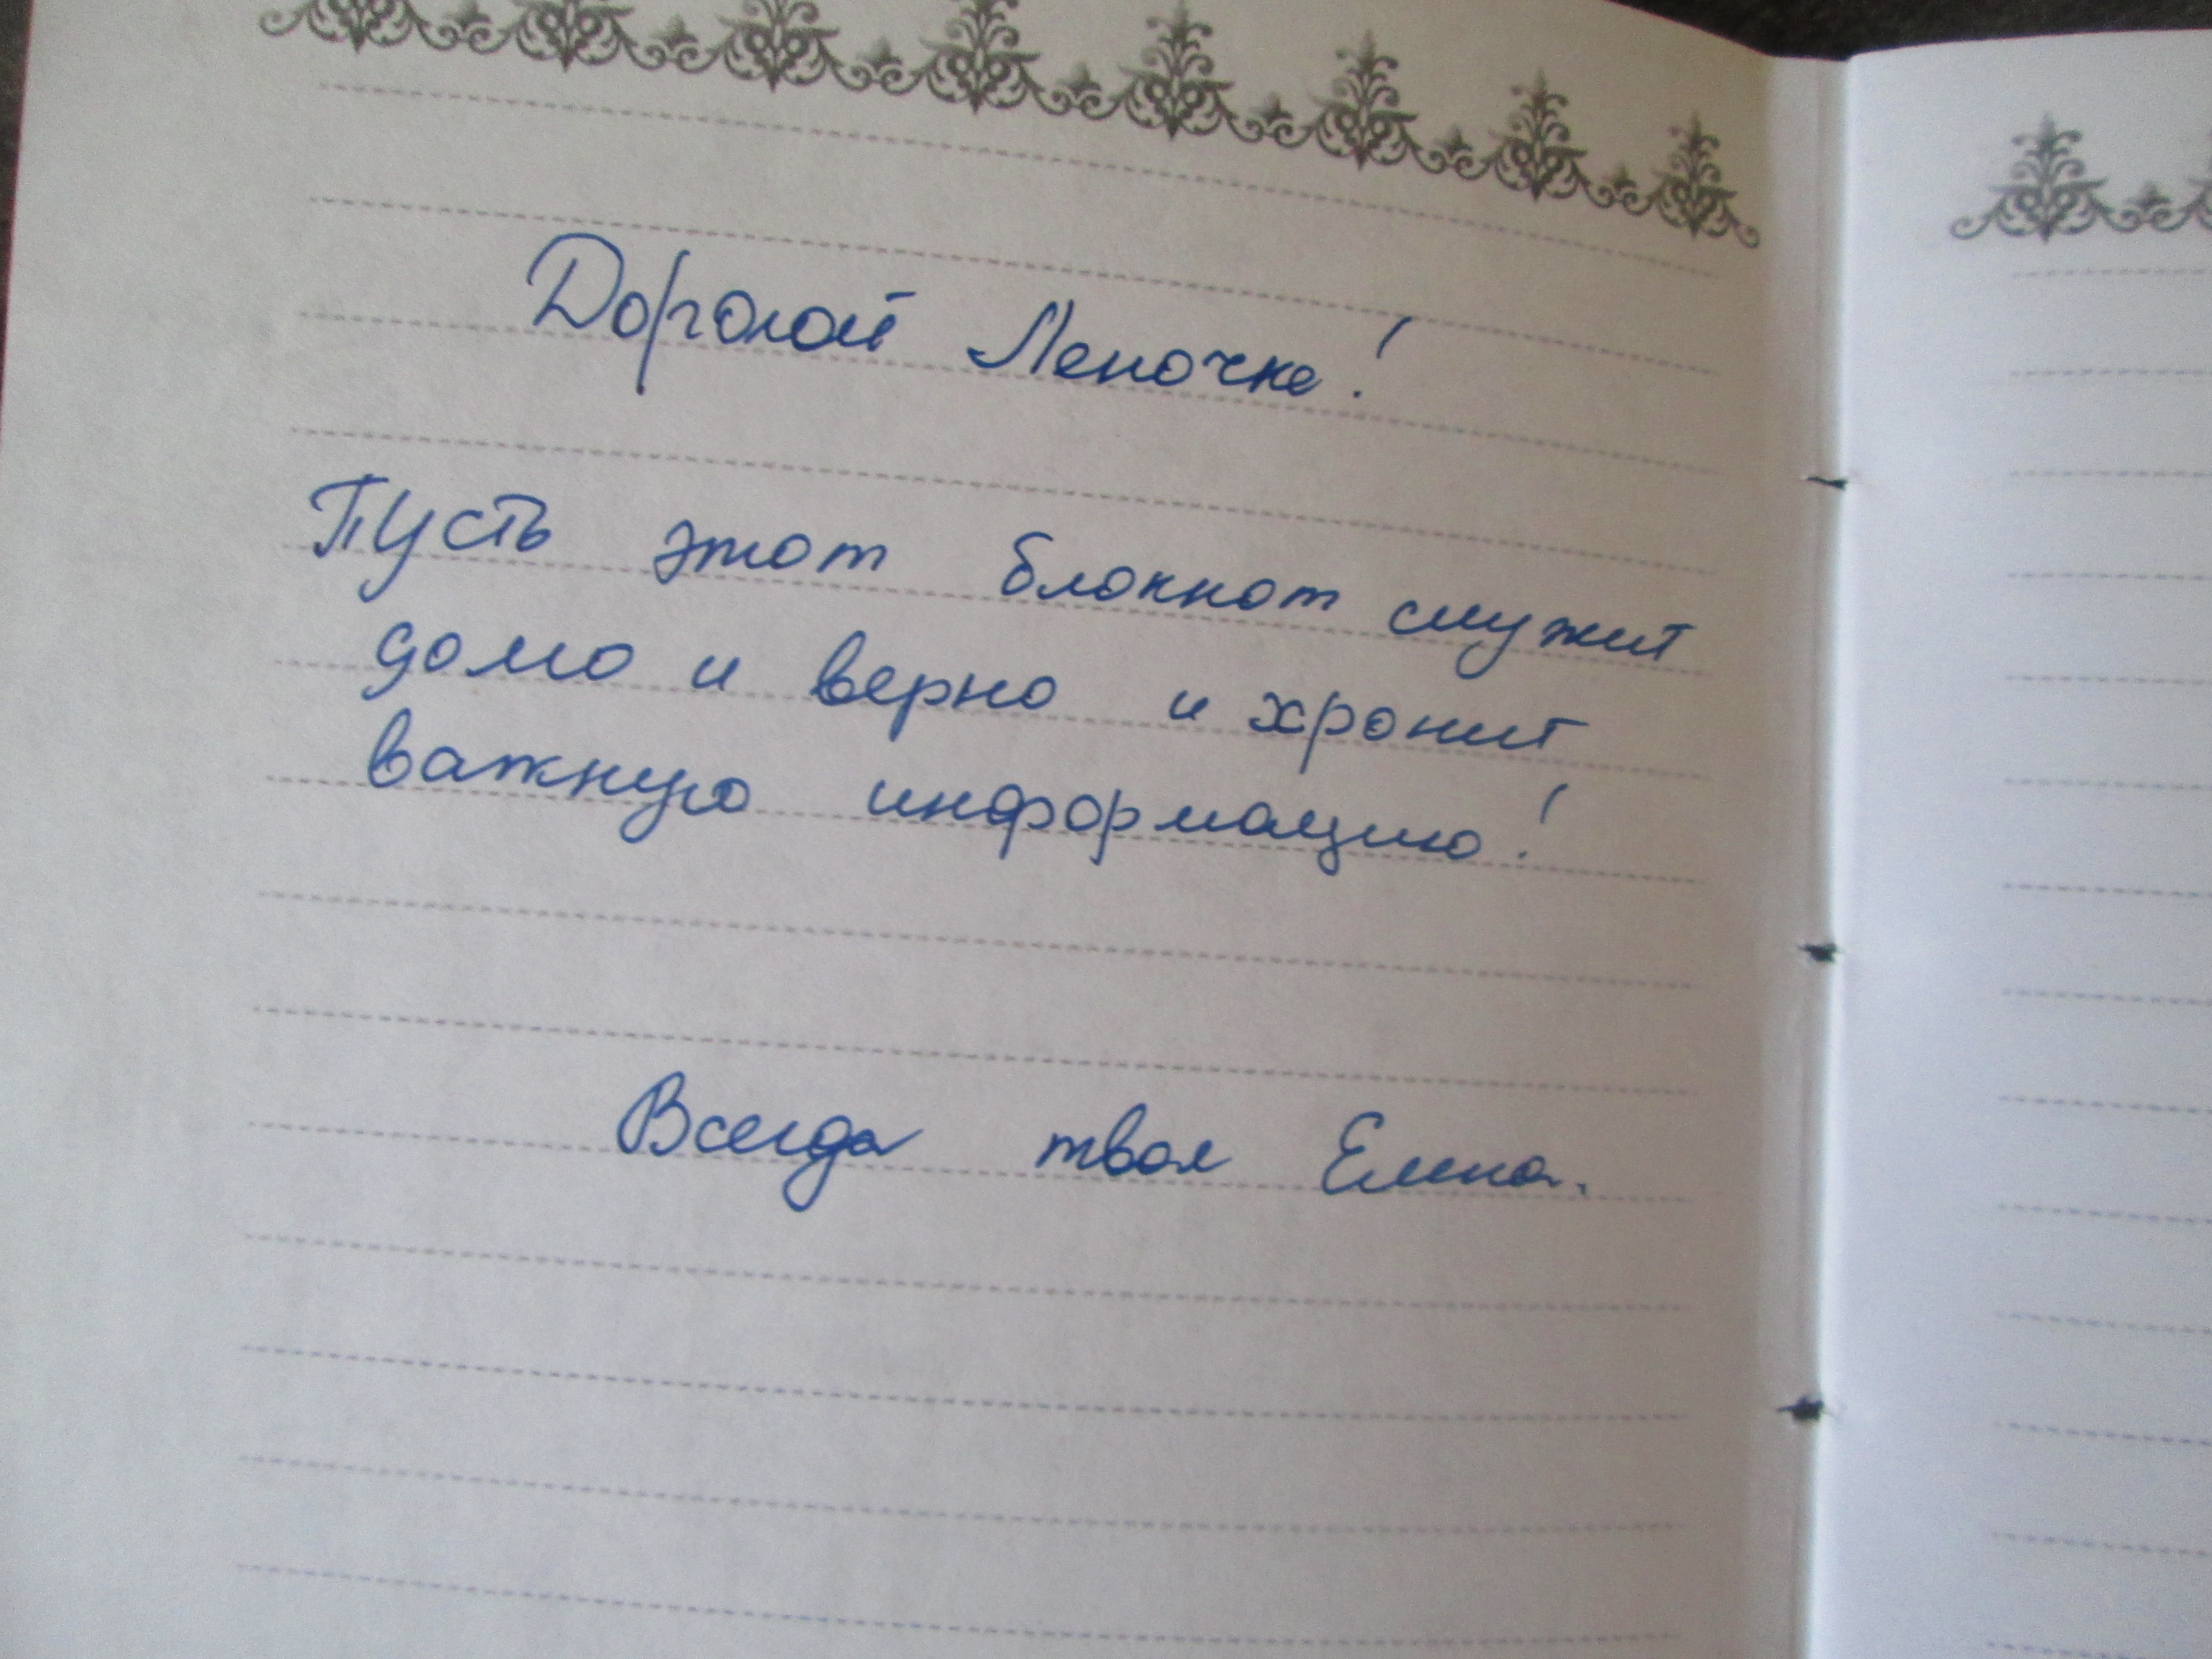 Дорогой Леночке!
Пусть этот блокнот служит
долго и верно и хранит
важную информацию!
Всегда твоя Елена.